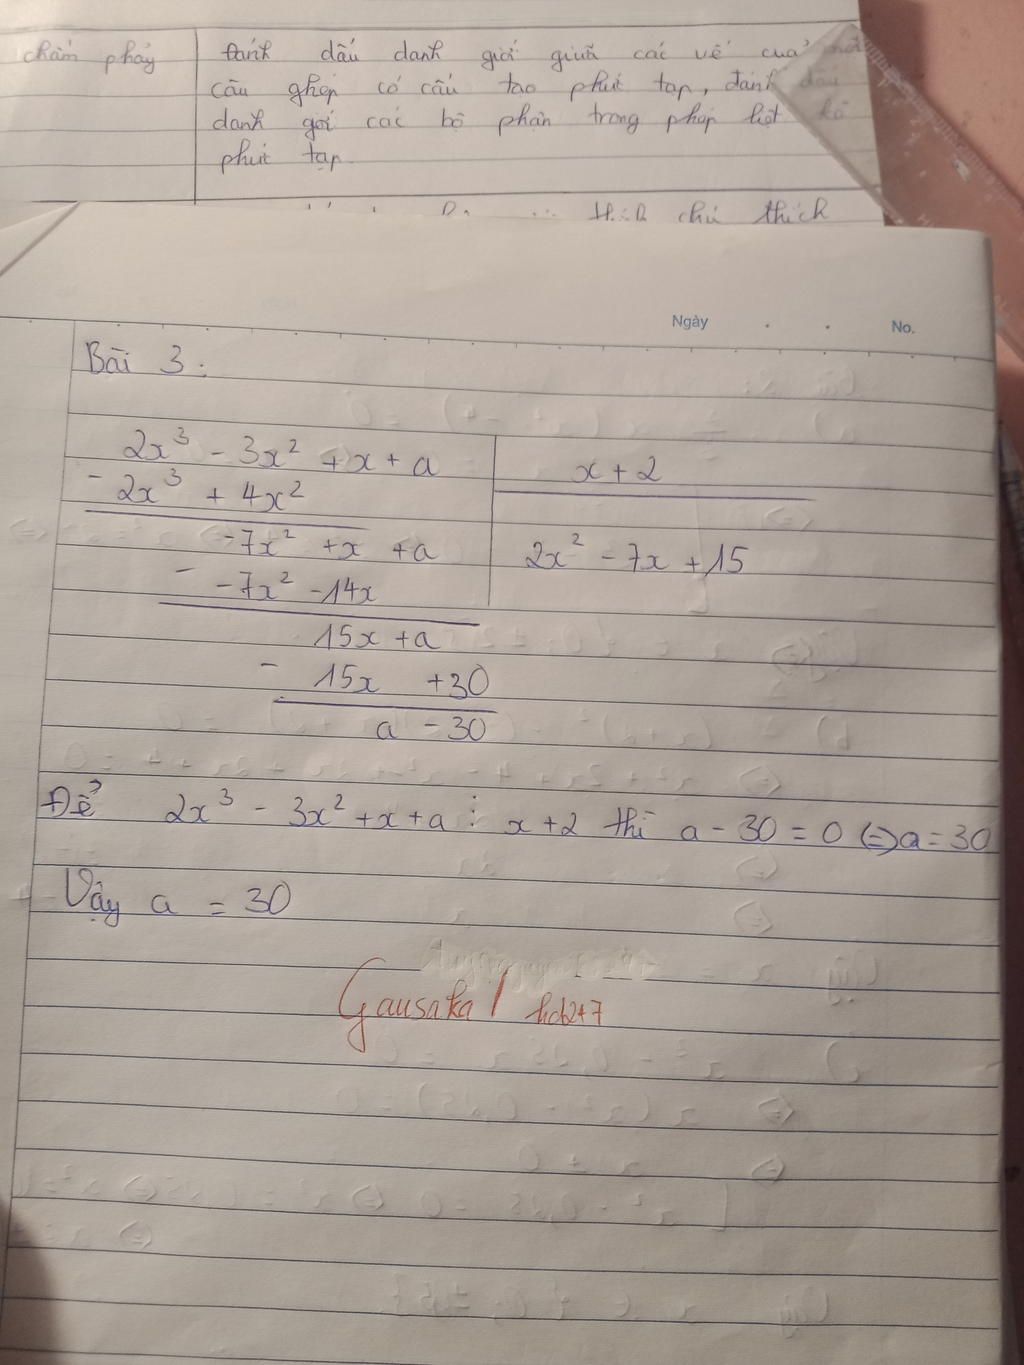 chấm phẩy
đánh dấu danh giới giữa các vế của
câu ghép có cấu tạo phức tạp, đánh dấu
danh giới các bộ phận trong phép liệt kê
phức tạp
chú thích
Ngày . . No.
Bài 3:
2x³ - 3x² + x + a
x + 2
- 2x³ + 4x²
-7x² + x + a
2x² - 7x + 15
- -7x² - 14x
15x + a
- 15x + 30
a - 30
Để 2x³ - 3x² + x + a ⋮ x + 2 thì a - 30 = 0 (=) a = 30
Vậy a = 30
Gausaka / hoc247